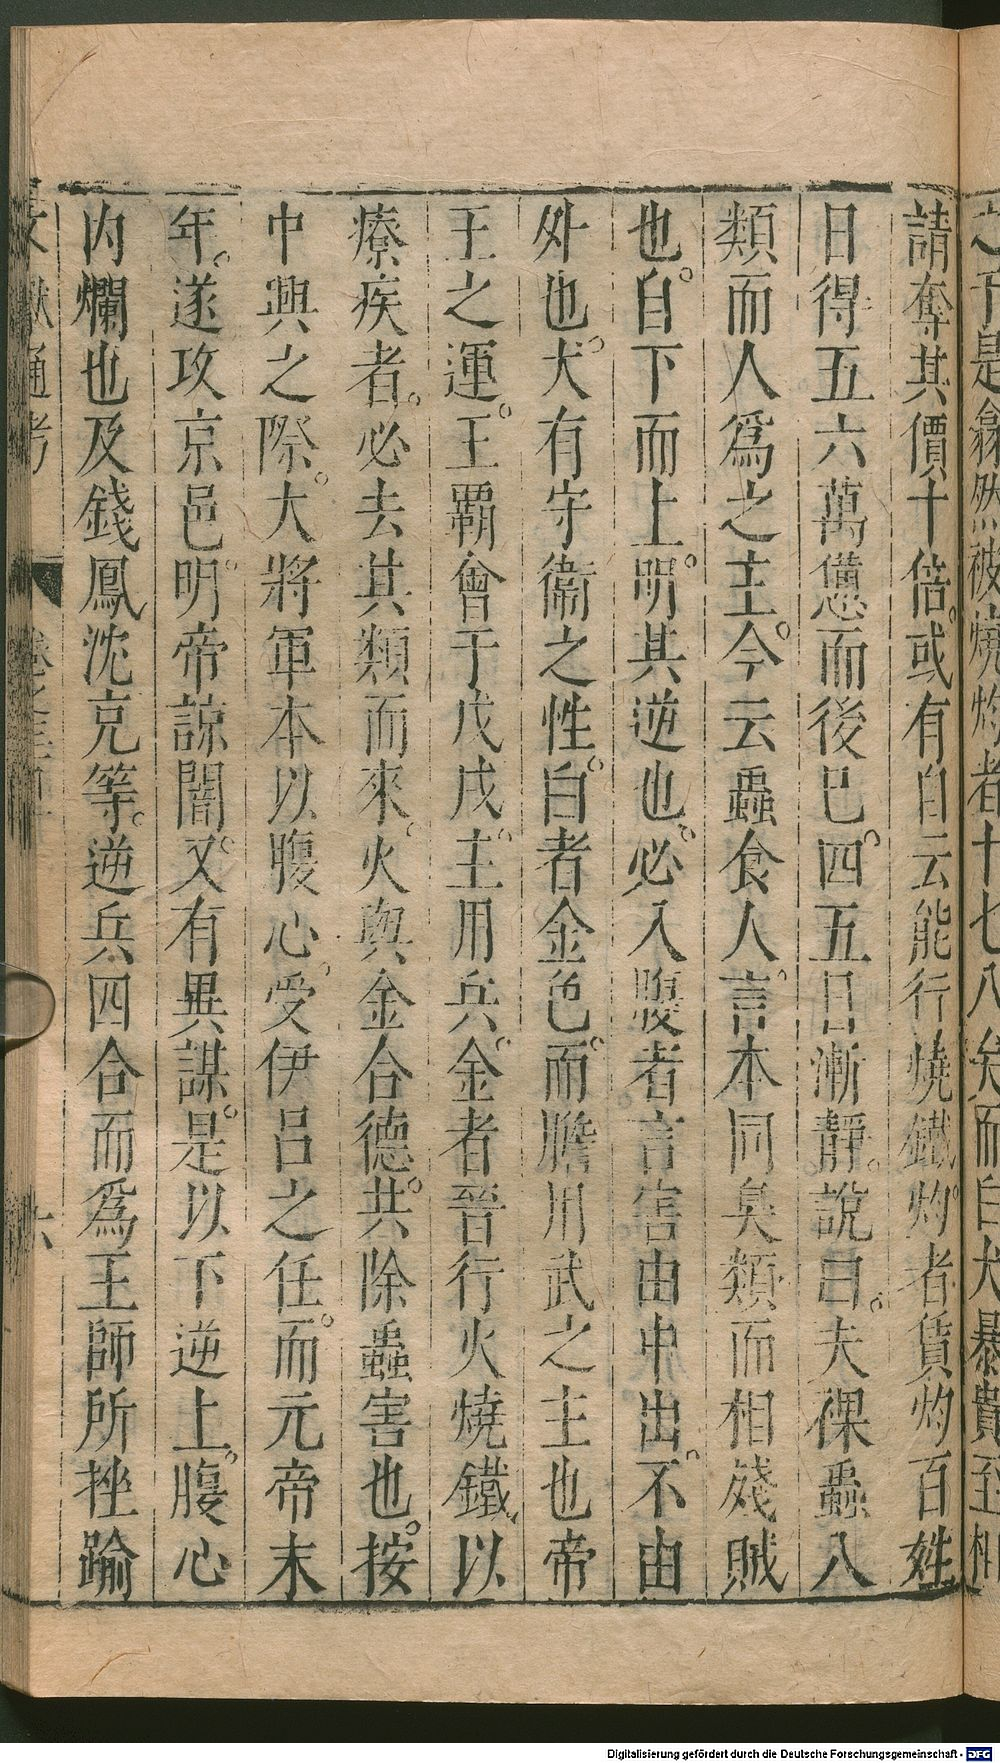 之下是翕然被燒灼者十七八矣而白犬暴貴至相
請奪其價十倍。或有自云能行燒鐵灼。者賃灼百姓
日得五六萬憊而後巳。四五日漸靜。說曰。夫裸蟲人
類而人爲之主。今云蟲食人。言本同臭類而相殘賊
也。自下而上。明其逆也。必入腹者言害由中出。不由
外也。犬有守衞之性。白者金色。而膽用武之主也帝
王之運。王覇會于戊戌。主用兵。金者晉行火燒鐵、以
療疾者。必去其類而來。火與金合德。共除蟲害也。按
中興之際。大將軍本以腹心。受伊呂之任。而元帝末
年。遂攻京邑。明帝諒闇。又有異謀。是以下逆上。腹心
内爛也及錢鳳沈克等。逆兵四合而爲王師所挫踰
文獻通考
六
Digitalisierung gefördert durch die Deutsche Forschungsgemeinschaft - DFG